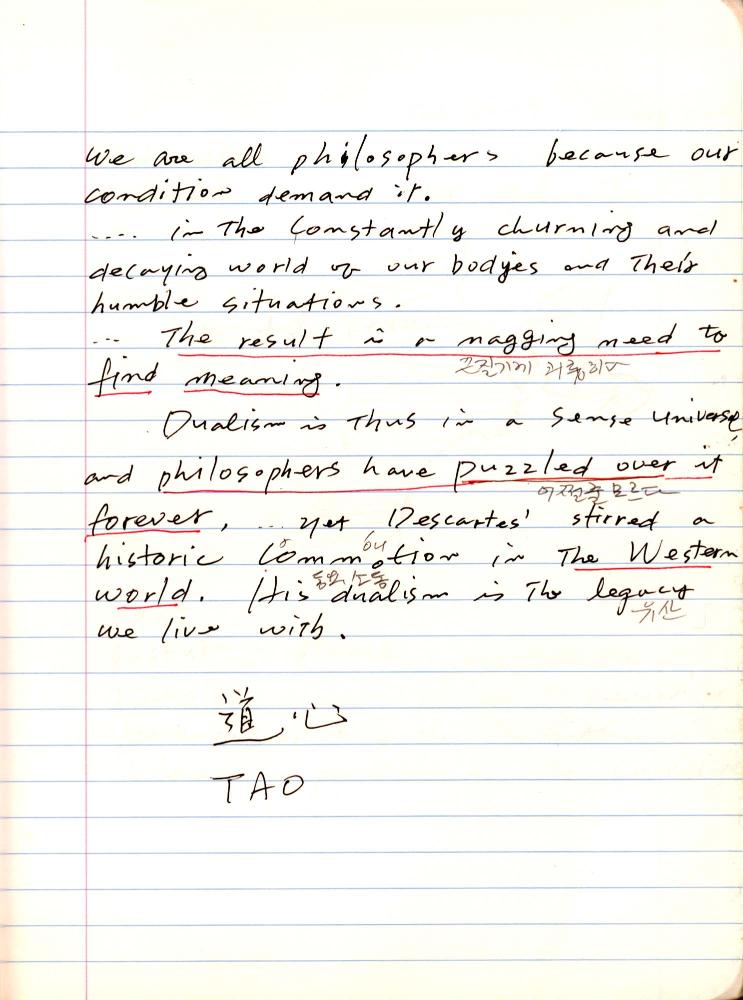 We are all philosophers because our
condition demand it.
.... in the Constantly churning and
decaying world of our bodyies and their
humble situations.
... The result is a nagging need to
끈질기게 괴롭히다
find meaning.
Dualism is thus in a sense universe,
and philosophers have puzzled over it
어쩔줄 모르다
forever, ... yet Descartes' stirred a
historic Commotion in the Western
동요, 소동
world. His dualism is the legacy
유산
we live with.
道心
TAO